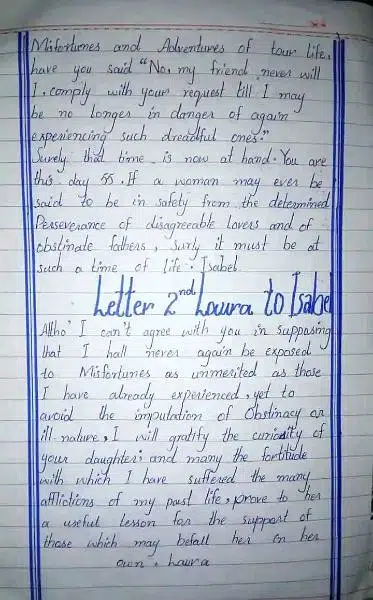 Misfortunes and Adventures of tour life,
have you said "No, my friend never will
I comply with your request till I may
be no longer in danger of again
experiencing such dreadful ones."
Surely that time is now at hand. You are
this day 55. If a woman may ever be
said to be in safety from the determined
Perseverance of disagreeable Lovers and of
obstinate fathers, Surly it must be at
such a time of life. Isabel
Letter 2nd Laura to Isabel
Altho' I can't agree with you in supposing
that I hall never again be exposed
to Misfortunes as unmerited as those
I have already experienced, yet to
avoid the imputation of Obstinacy or
ill-nature, I will gratify the curiosity of
your daughter; and many the fortitude
with which I have suffered the many
afflictions of my past life, prove to her
a useful lesson for the support of
those which may befall her in her
own. Laura